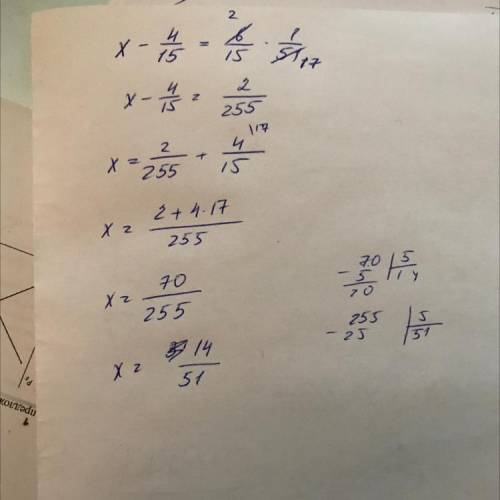 x - 4/15 = 6/15 · 1/51 2 17
x - 4/15 = 2/255
x = 2/255 + 4/15 \17
x = (2 + 4·17)/255
x = 70/255
x = 14/51
- 70 | 5
5 | 14
20
- 255 | 5
25 | 51
предлож